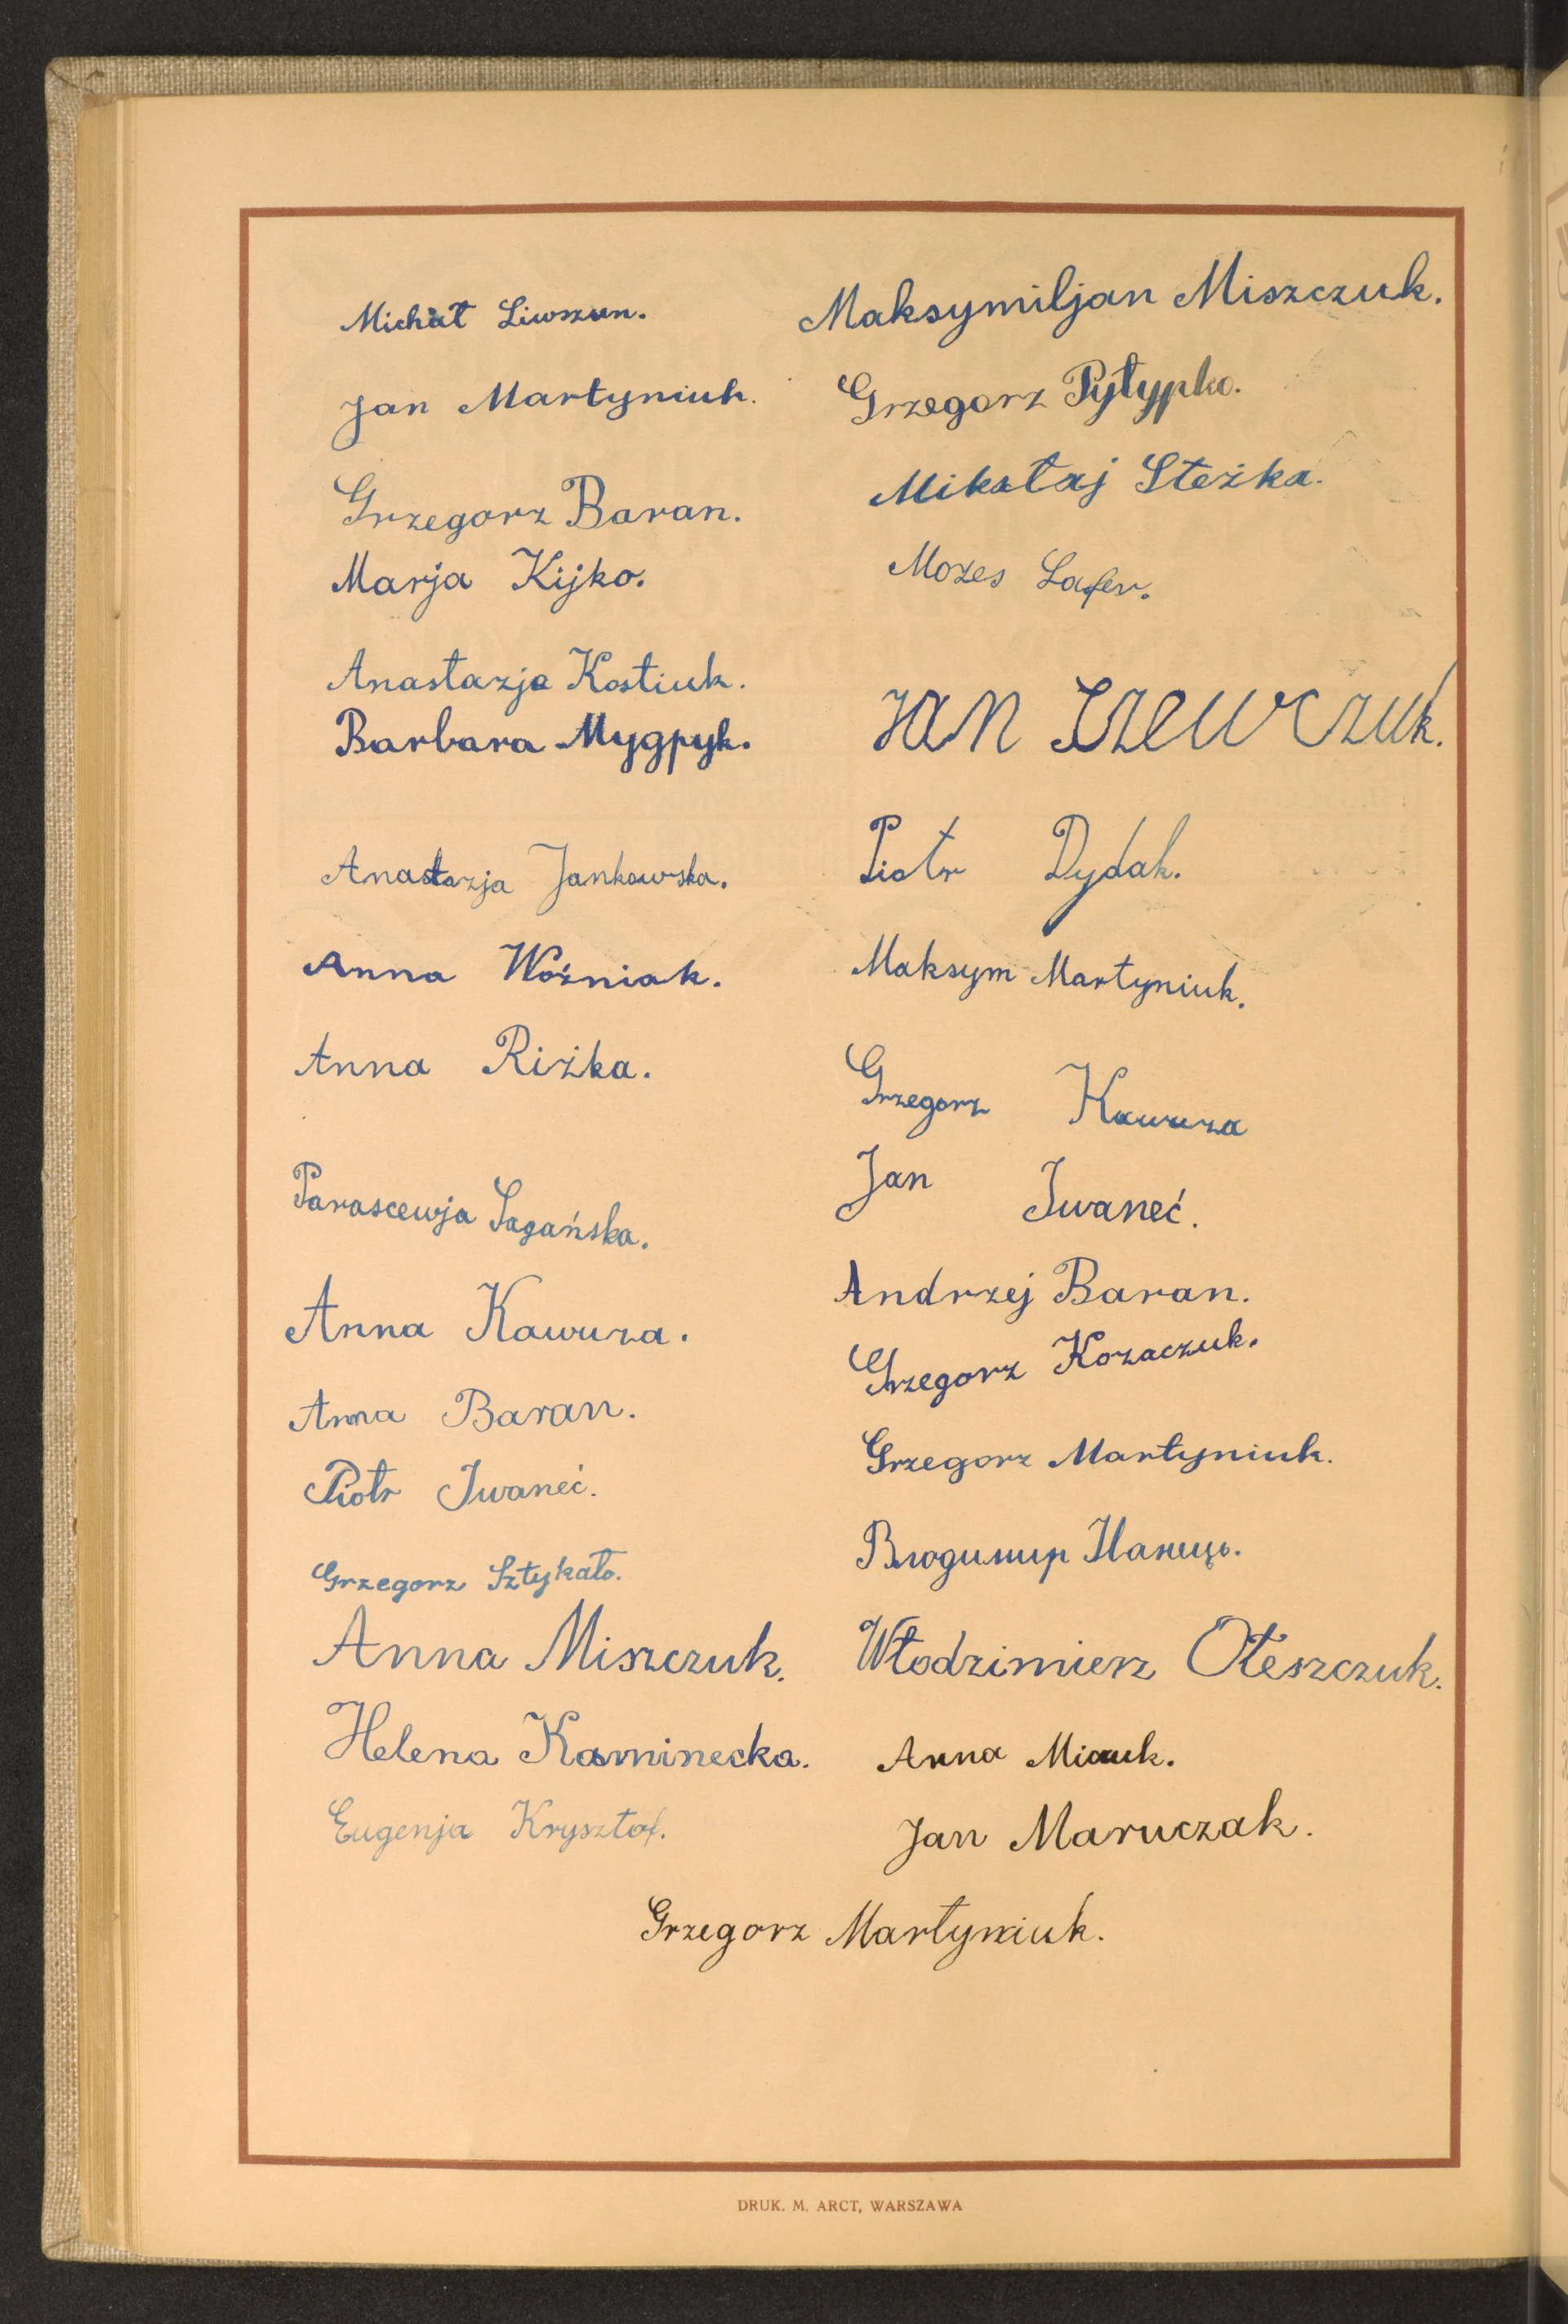 Michał Liwszun.
Jan Martyniuk.
Grzegorz Baran.
Marja Kijko.
Anastazja Kostiuk.
Barbara Mygpyk.
Anastazja Jankowska.
Anna Woźniak.
Anna Riżka.
Parascewja Sagańska.
Anna Kawuza.
Anna Baran.
Piotr Iwaneć.
Grzegorz Sztykało.
Anna Miszczuk.
Helena Kaminecka.
Eugenja Krysztof.
Maksymiljan Miszczuk.
Grzegorz Pyłypko.
Mikołaj Steżka.
Mozes Lafer.
Jan Szewczuk.
Piotr Dydak.
Maksym Martyniuk.
Grzegorz Kawuza
Jan Iwaneć.
Andrzej Baran.
Grzegorz Kozaczuk.
Grzegorz Martyniuk.
Włodzimierz Ołeszczuk.
Anna
Jan Maruczak.
Grzegorz Martyniuk.
DRUK. M. ARCT, WARSZAWA